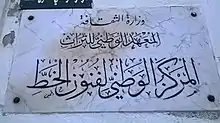 وزارة الثقافة
المعهد الوطني للتراث
المركز الوطني لفنون الخط